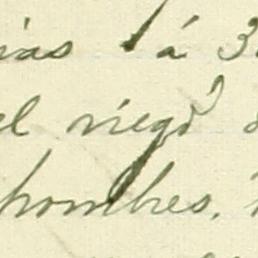 ias á 3
el riego
hombres.